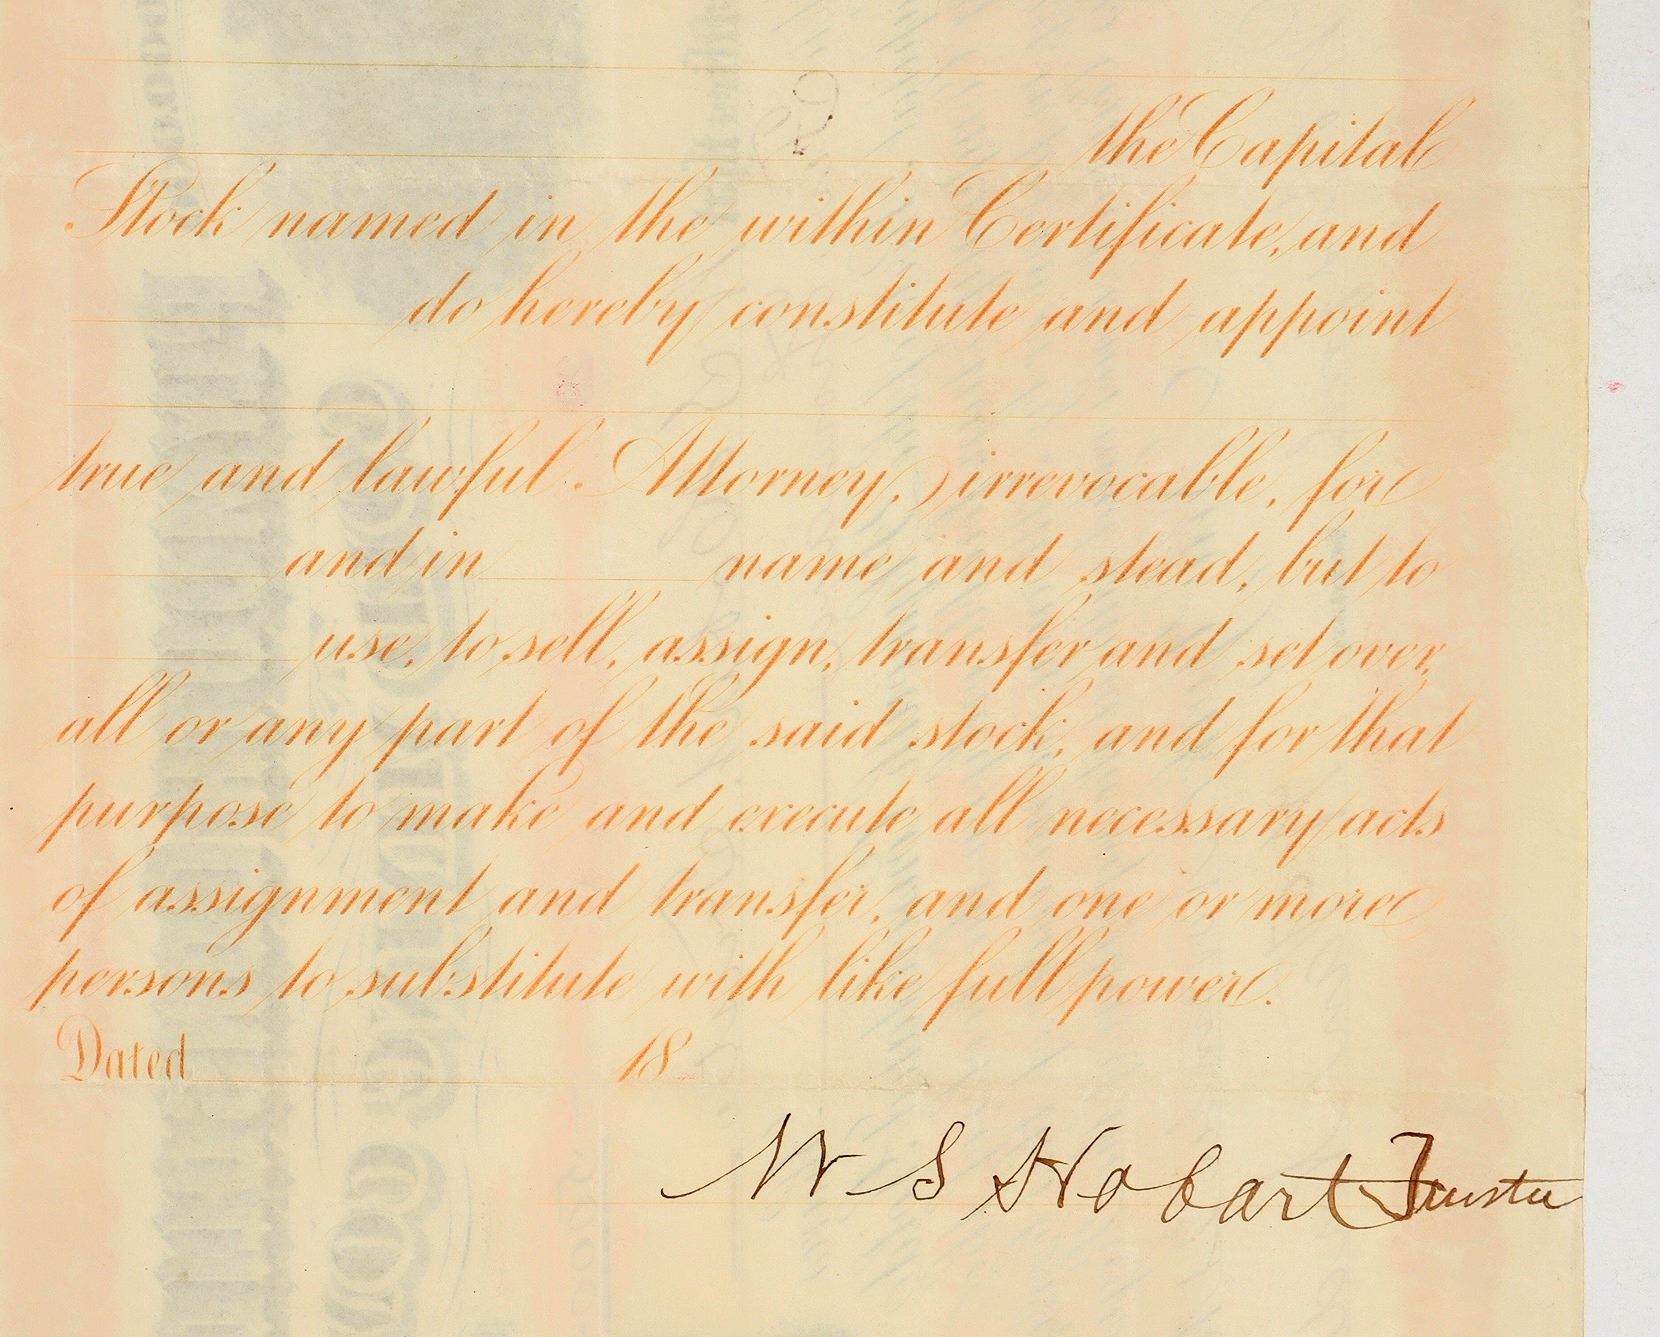 the Capital
Stock named in the within Certificate, and
do hereby constitute and appoint
true and lawful Attorney, irrevocable, for
and in name and stead, but to
use, to sell, assign, transfer and set over,
all or any part of the said stock, and for that
purpose to make and execute all necessary acts
of assignment and transfer, and one or more
persons to substitute with like full power.
Dated 18
W S Hobart Trustee